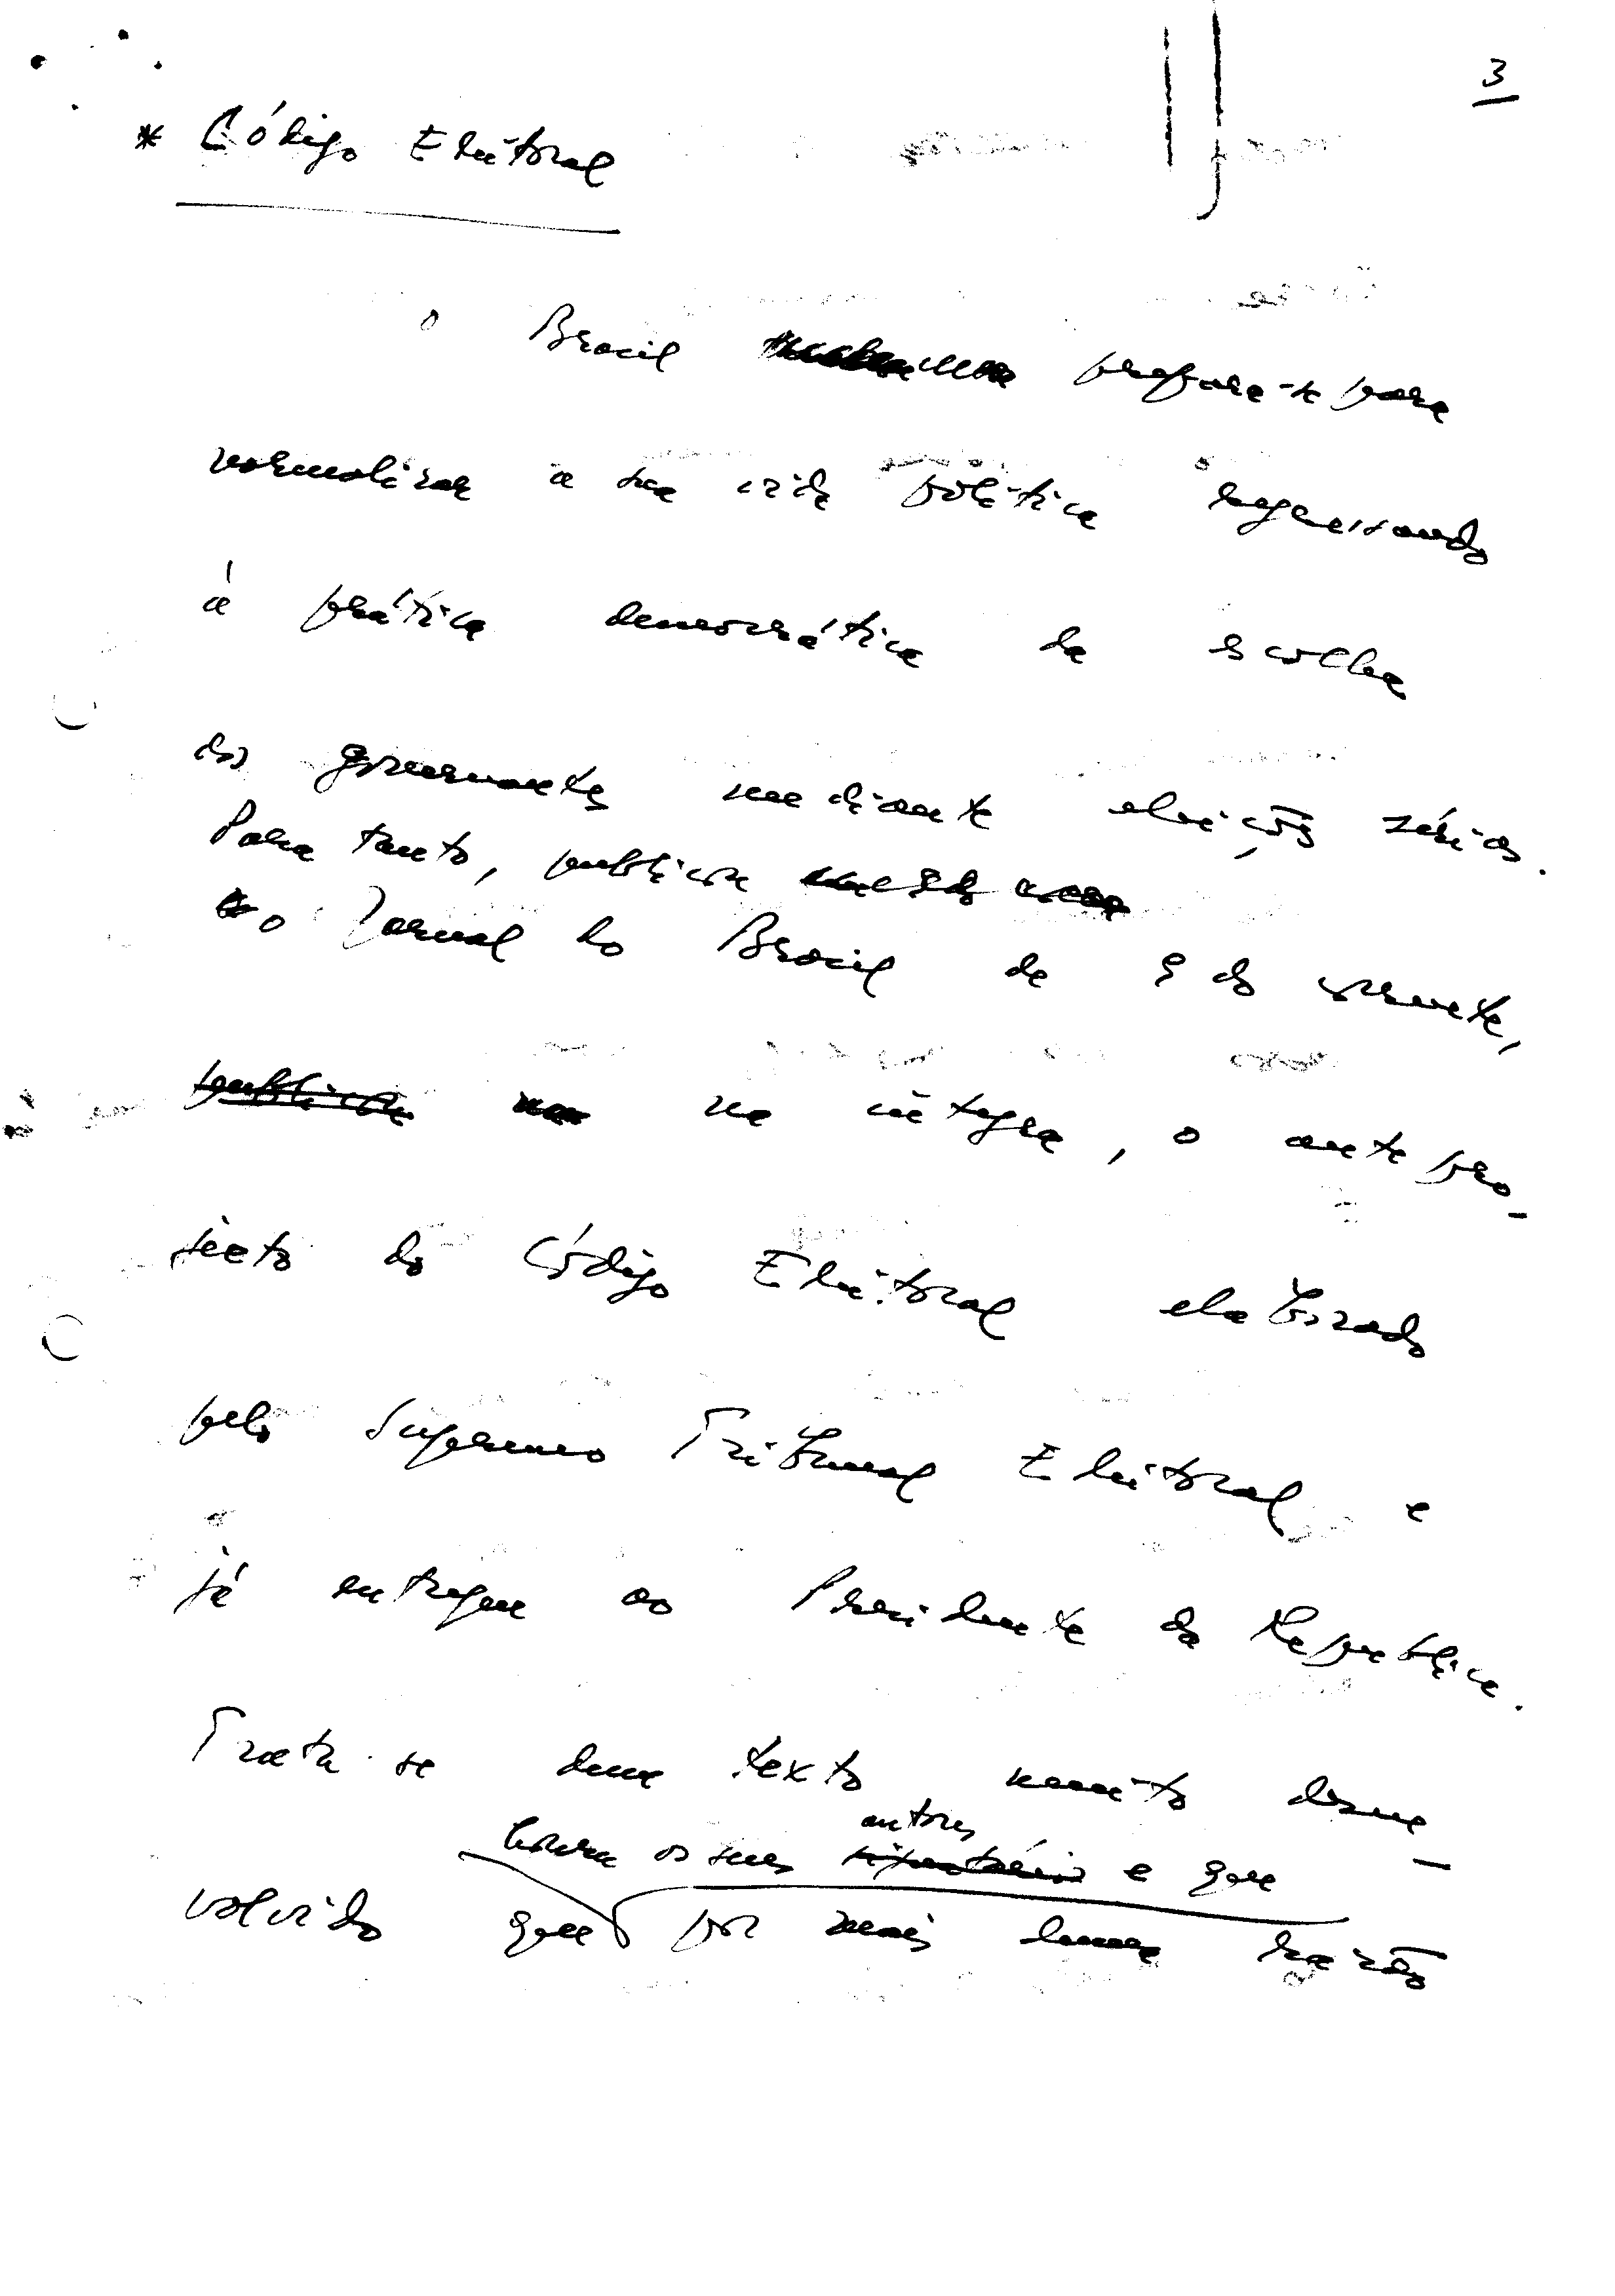 3
* Código Eleitoral
o Brasil prepara-se para
normalizar a sua vida política regressando
à prática democrática da escolha
dos governantes mediante eleições sérias.
Para tanto, publicou
o Jornal do Brasil de 9 do corrente,
publicou na íntegra, o antepro-
jecto do Código Eleitoral elaborado
pelo Supremo Tribunal Eleitoral e
já entregue ao Presidente da República.
Trata-se dum texto muito desen-
autores
honra os seus e que
volvido que por mais duma razão